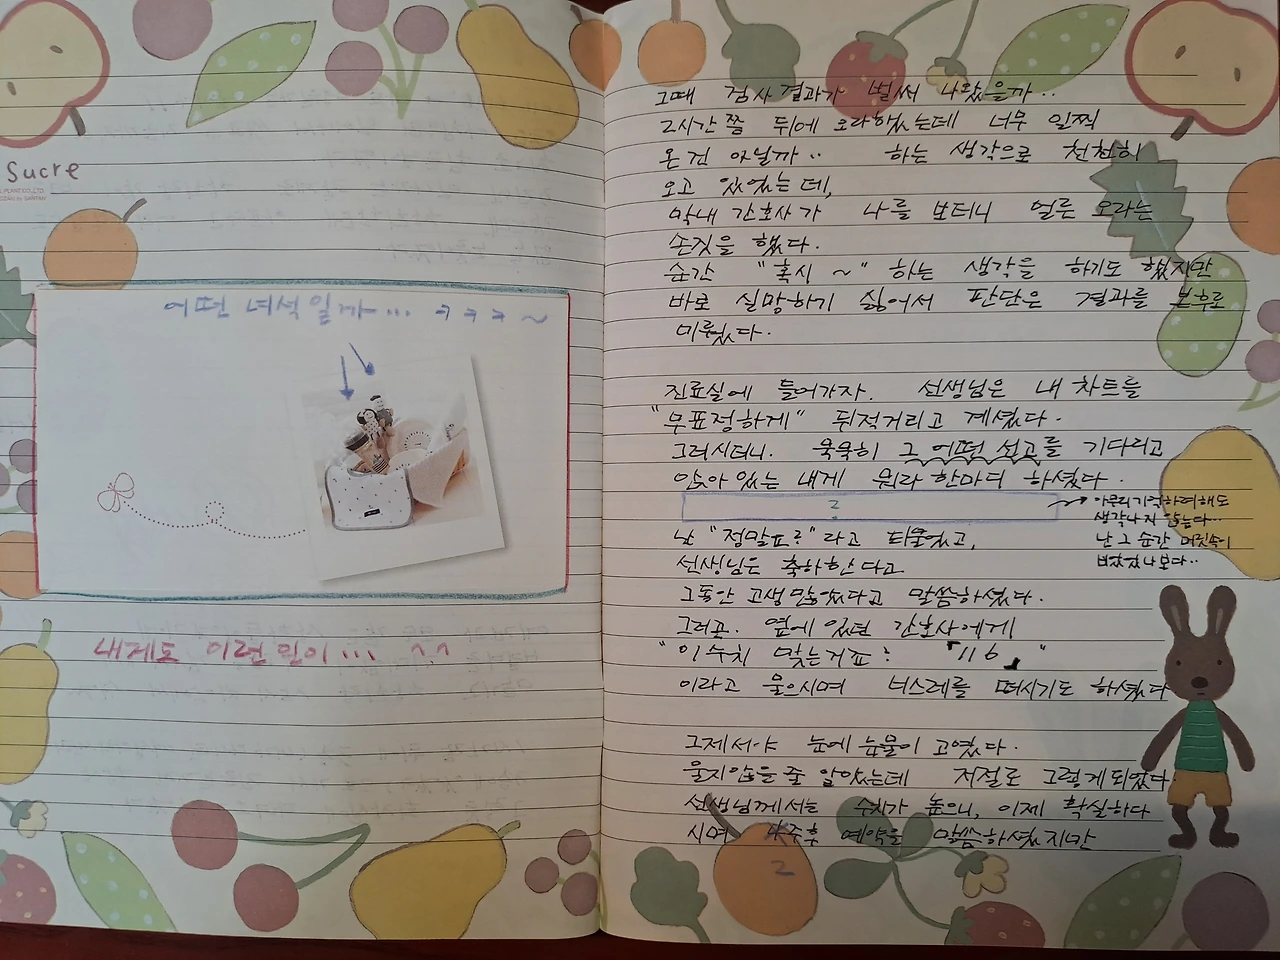 Sucre
어떤 녀석일까... ㅋㅋㅋ~
내게도 이런 일이... ^^
그때 검사결과가 벌써 나왔을까..
2시간쯤 뒤에 오라했었는데 너무 일찍
온건 아닐까.. 하는 생각으로 천천히
오고 있었는데,
막내 간호사가 나를 보더니 얼른 오라는
손짓을 했다.
순간 "혹시 ~" 하는 생각을 하기도 했지만
바로 실망하기 싫어서 판단은 결과를 모후로
미뤘다.
진료실에 들어가자. 선생님은 내 차트를
"무표정하게" 뒤적거리고 계셨다.
그러시더니. 묵묵히 그 어떤 선고를 기다리고
앉아 있는 내게 뭐라 한마디 하셨다.
?
아무리 기억하려해도
생각나지 않는다...
난 그 순간 머릿속이
비었었나보다..
난 "정말요?"라고 되물었고,
선생님은 축하한다고.
그동안 고생많았다고 말씀하셨다.
그러곤. 옆에 있던 간호사에게
"이수치 맞는거죠? 「116」"
이라고 물으시며 너스레를 떠시기도 하셨다
그제서야 눈에 눈물이 고였다.
울지않을 줄 알았는데 저절로 그렇게되었다.
선생님께서는 수치가 높으니, 이제 확실하다
시며 주후 예약을 말씀하셨지만
2